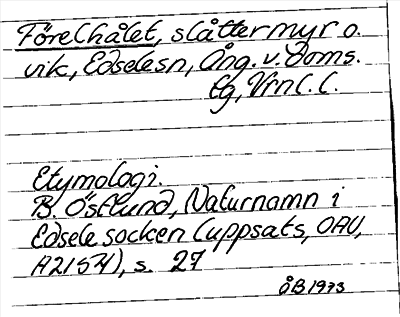 Förelhålet, slåttermyr o.
vik, Edselesn, Ång. v. Doms.
tg, Vrn l. l.
Etymologi.
B. Östlund, Naturnamn i
Edsele socken (uppsats, OAU,
A2154), s. 27
ÅB 1973